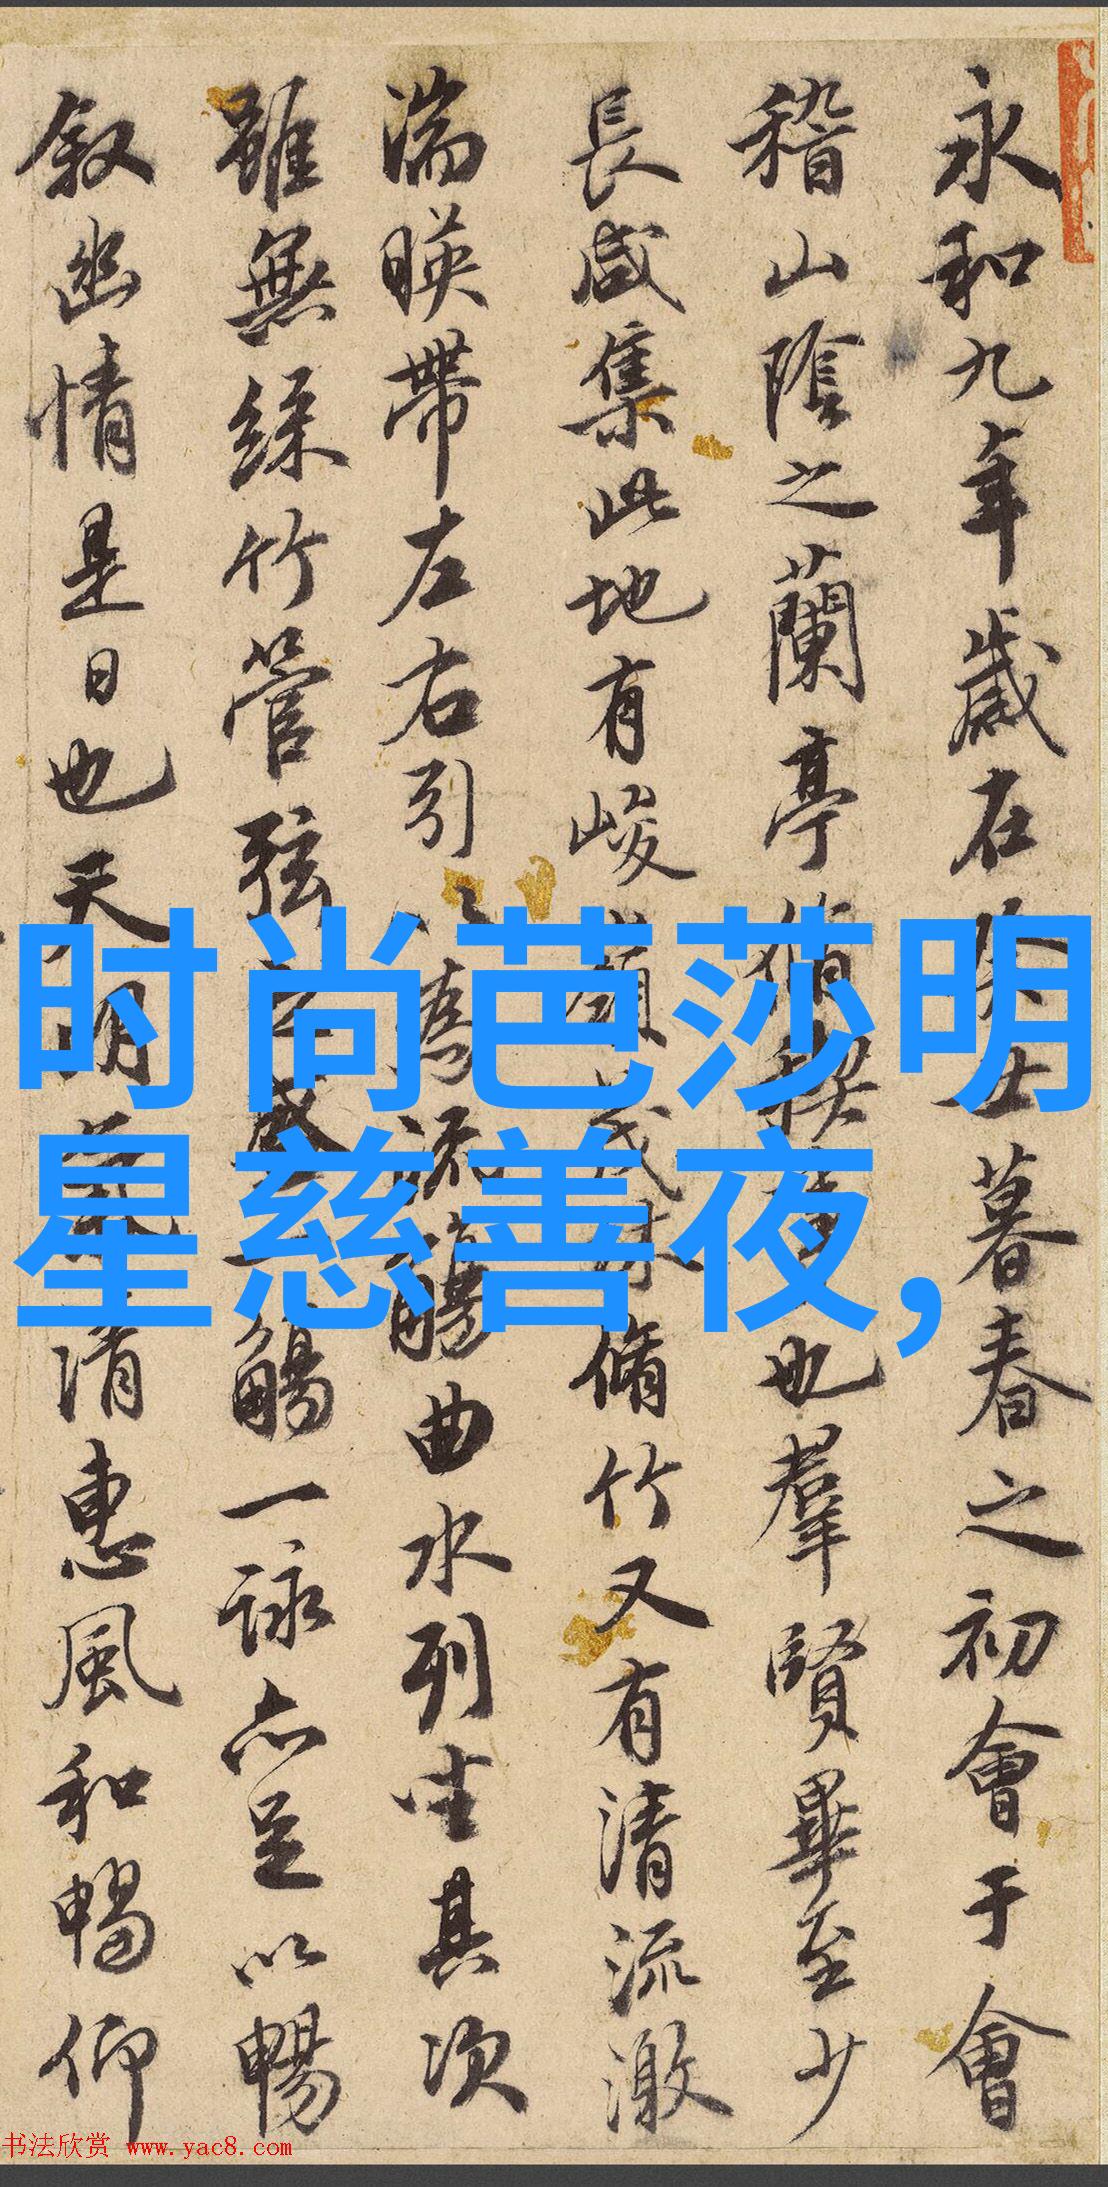 永和九年歲在癸丑暮春之初會于會
稽山陰之蘭亭脩禊事也羣賢畢至少
長咸集此地有峻嶺茂林脩竹又有清流激
湍暎帶左右引以為流觴曲水列坐其次
雖無絲竹管弦之盛一觴一詠亦足以暢
叙幽情是日也天朗氣清惠風和暢仰
时尚芭莎明
星慈善夜,
书法欣赏 www.yac8.com